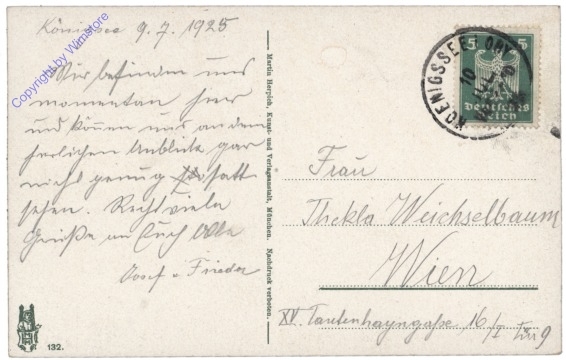 Königssee 9.7.1925
Wir befinden uns
momentan hier
und können uns an dem
herrlichen Anblicke gar
nicht genug satt
sehen. Recht viele
Grüße an Euch Alle
Josef u. Frieda
132.
Martin Herpich, Kunst- und Verlagsanstalt, München. Nachdruck verboten.
KOENIGSSEE OBY
10
5 5
Deutsches
Reich
Frau
Thekla Weichselbaum
Wien
XV. Tautenhayngaße 16/I Tür 9
Copyright by Winstore